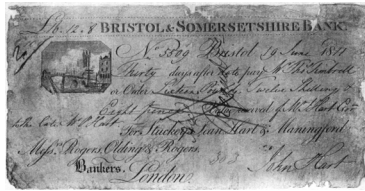 £16. 12. 8 BRISTOL & SOMERSETSHIRE BANK.
No. 5809 Bristol 19 June 1811
Thirty days after date pay Mr. Thos
or Order Sixteen Pounds, Twelve Shillings &
Eight pence received of Mr.
For Stuckey, Lean, Hart & Maningford
Messrs. Rogers, Olding & Rogers,
Bankers, London.
John Hart